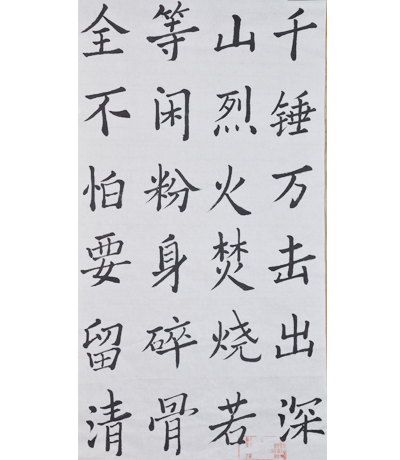 千锤万击出深
山烈火焚烧若
等闲粉身碎骨
全不怕要留清